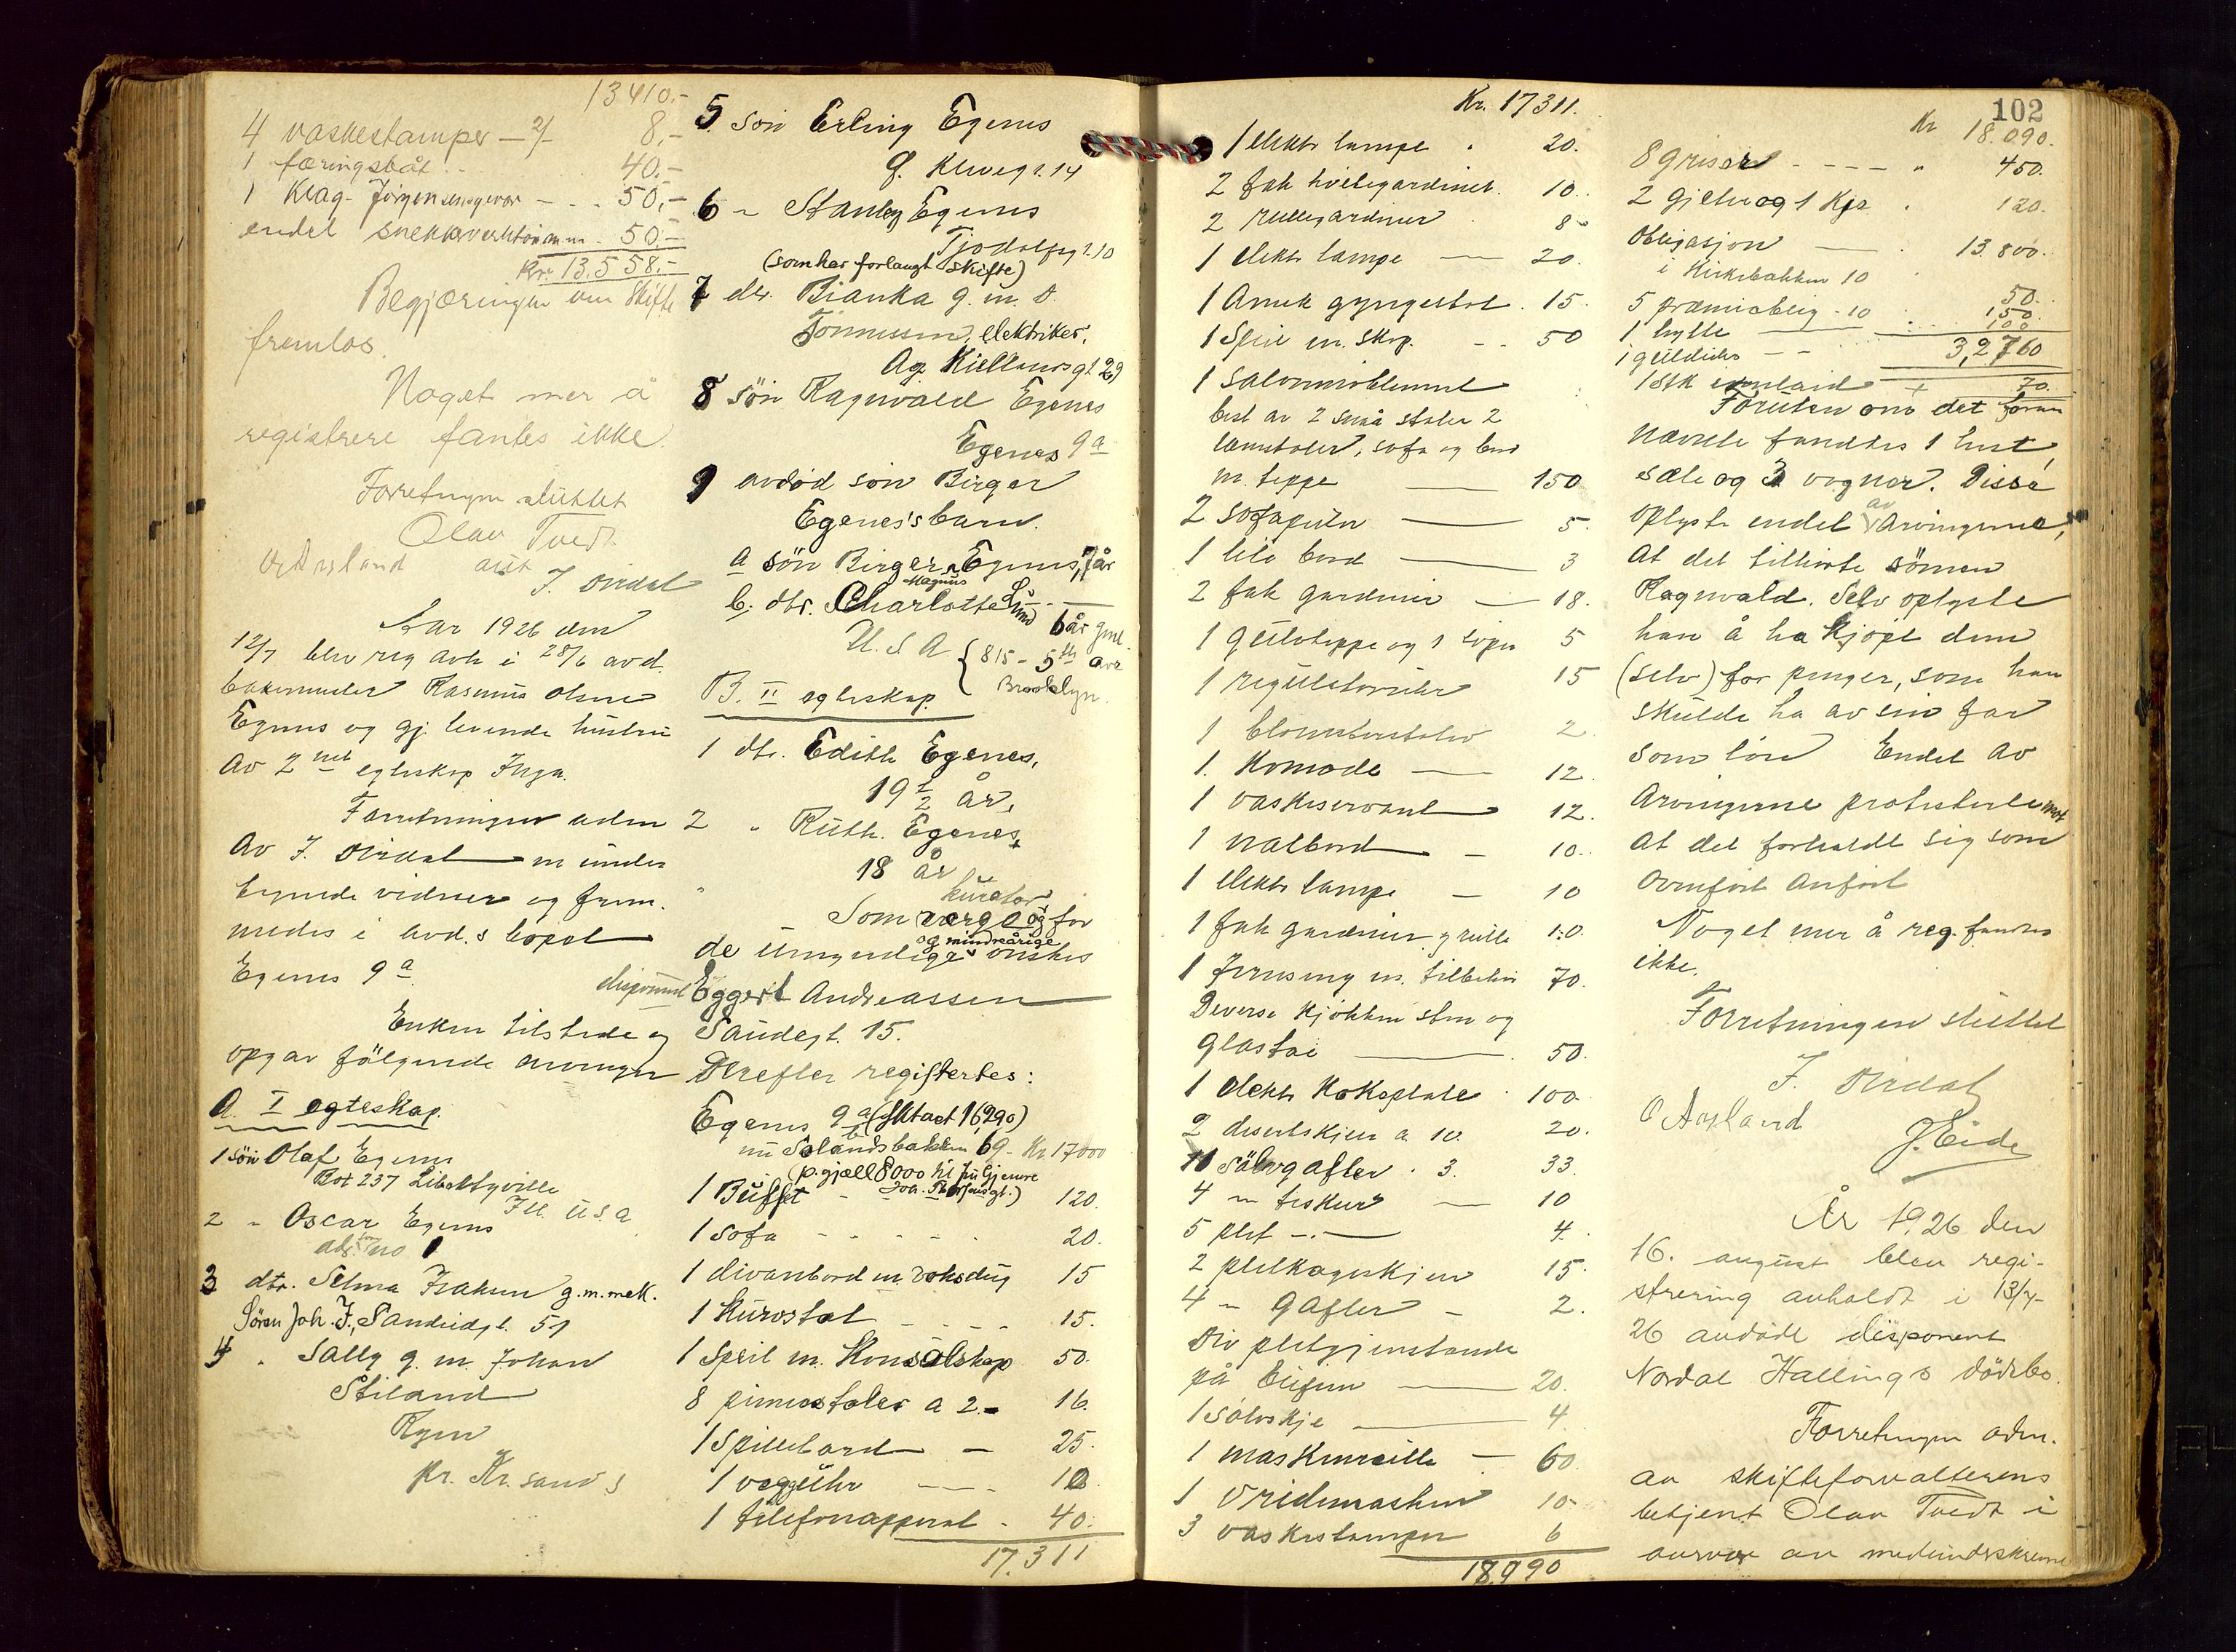 13410.-
4 vaskestamper - 2/- 8.-
1 færingsbåt 40.-
1 Klag- Jörgensensgevær - 50.-
endel snekkerverktöi m.m. 50.-
Kr. 13.558.-
Begjæringen om Skifte
fremlas.
Noget mer å
registrere fantes ikke.
Forretningen sluttet
Olav Tvedt
O Aasland aut
J. Oirdal
Aar 1926 den
12/7 blev reg avh i 28/6 avd.
Rasmus Olsen
Egenes og gj. levende hustru
av 2net egteskap Inga.
Forretningen adm
av J. Oirdal m under
tegnede vidner og frem-
medes i avd.s bopel
Egenes 9a
Enken tilstede og
opgav fölgende arvinger
A. I egteskap.
1 sön Olaf Egenes
Box 237 Libertyville
Ill. U.S.A
2 " Oscar Egenes
adr. som no 1
3 dtr. Selma Isaksen g.m. mek.
Sören Joh. I., Sandeidgt. 51
4 " Sally g. m. Johan
Stiland
Ryen
pr. Kr.sand S
5 sön Erling Egenes
gt. 14
6 " Stanley Egenes
Tjodolfsgt. 10
(som har forlangt skifte)
7 dtr. Bianka g. m. O.
Tönnessen, elektriker,
Ag. Kiellandsgt 29
8 sön Ragnvald Egenes
Egenes 9a
9 avdöd sön Birger
Egenes's barn.
a sön Birger Magnus Egenes, 7 år
b. dtr. Charlotte Lind - 6 år gml.
U.S.A. { 815 - 5th ave
Brooklyn.
B. II egteskap.
1 dtr. Edith Egenes,
19 1/2 år,
2 " Ruth. Egenes,
18 år
kurator
Som verge og for
de umyndige og mindreårige önskes
disponent Eggert Andreassen
Saudegt. 15.
Derefter registertes:
Egenes 9a (Sktaxt 16,290)
nu Solandsbakken 69 - Kr. 17000
(p.gjæld 8000 til
1 Buffet - 120.
1 Sofa - - - - - 20.
1 divanbord m. voksdug 15
1 Kurvstol - - - - 15.
1 Speil m. Konsolskap 50.
8 pinnestoler a 2.- 16.
1 Spillebord - 25.
1 vægguhr - - - 10
1 telefonapparat - 40.
17.311
Kr. 17311.
1 elektr lampe " 20.
2 fak hvitegardiner. 10.
2 rullegardiner 8.
1 elektr lampe — 20.
1 Amrk gyngestol . 15.
1 Speil m. Skap. - - 50
1 salonmöblement
best av 2 små stoler 2
lænestoler, sofa og bord
m. teppe — 150
2 sofaputer — 5.
1 lite bord — 3
2 fak gardiner — 18.
1 gulvteppe og 1 löper 5
1 regulatoruhr 15
1 blomsterstativ 2
1. Komode — 12.
1 vaskeservant 12.
1 natbord — 10.
1 elektr lampe — 10
1 fak gardiner g rulle 10.
1 Jernseng m. tilbehör 70.
Deverse kjökken sten og
glastöi — 50.
1 elektr Kokeplate . 100.
2 desertskjeer a 10. 20.
11 sölvgafler . 3. 33.
4 " teskeer — 10
5 plet -.- 4.
2 pletkageskjeer 15.
4 " gafler - 2.
Div pletgjenstande
på buffeten — 20.
1 sölvskje — 4.
1 — 60.
1 Vridemaskin 10.
3 vaskestamper 6
18,090
102
Kr 18.090.
8 griser - - - - " 450.
2 gjeter og 1 Kje . 120.
Obligasjon — . 13.800.
i Kirkebakken 10
5 præmieoblig - 10 50.
1 hytte — 150.
1 gulduhr - - 100
32760
1 Stk 70.
Foruten om det foran
nævnte fandtes 1 hest,
sæle og 3 vogner. Disse
oplyste endel av arvingerne,
at det tilhörte sönnen
Ragnvald. Selv oplyste
han å ha kjöpt dem
(selv) for penger, som han
skulde ha av sin far
som lön Endel av
arvingerne protesterte mot
at det forholdt sig som
ovenfört anfört
Noget mer å reg. fandtes
ikke.
Forretningen sluttet
J. Oirdal
O Aasland
J. Eide
År 1926 den
16. august blev regi-
strering avholdt i 13/7-
26 avdöde disponent
Nordal Hallings dödsbo.
Forretningen adm.
av skifteforvalterens
betjent Olav Tvedt i
nærvær av medundeskrevne